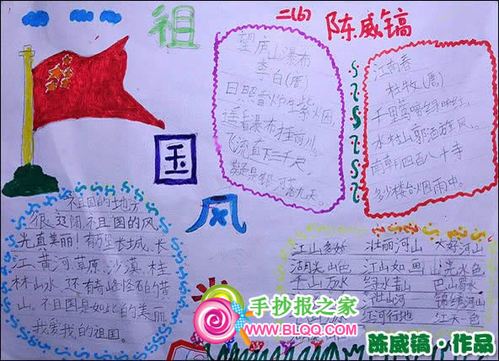 祖
国
风
二(6)
陈威镐
望庐山瀑布
李白(唐)
日照香炉生紫烟
遥看瀑布挂前川
飞流直下三千尺
江南春
杜牧(唐)
千里莺啼绿映红
水村山郭酒旗风
南朝四百八十寺
多少楼台烟雨中。
祖国的地方
很辽阔祖国的风
光真美丽!有长城、长
江、黄河、草原、沙漠、桂
林山水、还有
山。祖国是如此的美丽
我爱我的祖国。
江山多娇 壮丽河山 大好河山
湖光山色 江山如画 山光水色
千山万水 绿水青山 巴山蜀水
锦绣河山
手抄报之家
WWW.BLQQ.COM
陈威镐·作品